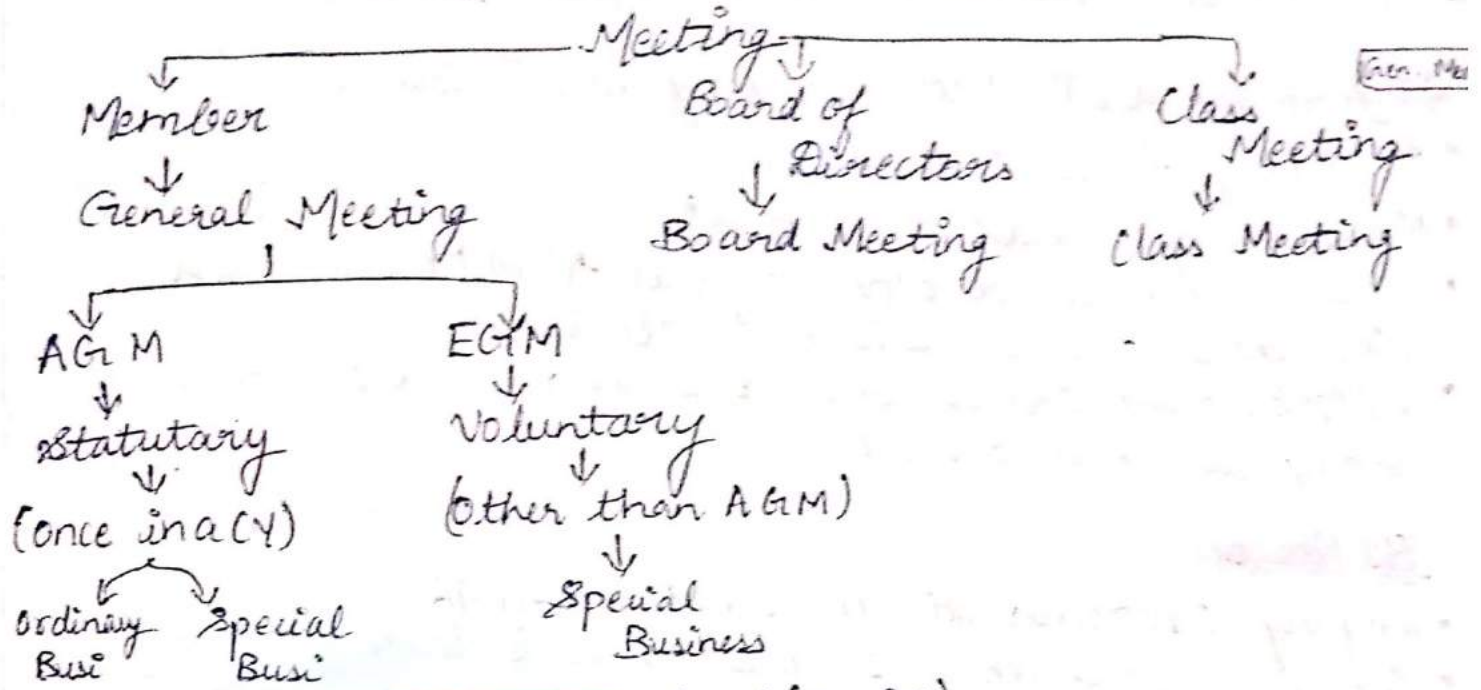 Meeting
Member
General Meeting
AGM
Statutary
(once in a CY)
ordinary Busi
Special Busi
EGM
Voluntary
(Other than AGM)
Special
Business
Board of
Directors
Board Meeting
Class
Meeting
Class Meeting
Gen.